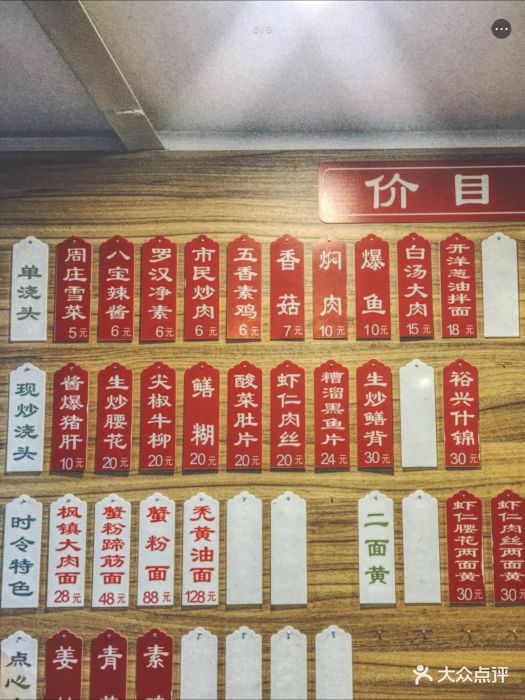 6/9
价目
单浇头
周庄雪菜 5元
八宝辣酱 6元
罗汉净素 6元
市民炒肉 6元
五香素鸡 6元
香菇 7元
焖肉 10元
爆鱼 10元
白汤大肉 15元
开洋葱油拌面 18元
现炒浇头
酱爆猪肝 10元
生炒腰花 20元
尖椒牛柳 20元
鳝糊 20元
酸菜肚片 20元
虾仁肉丝 20元
糟溜黑鱼片 24元
生炒鳝背 30元
裕兴什锦 30元
时令特色
枫镇大肉面 28元
蟹粉蹄筋面 48元
蟹粉面 88元
秃黄油面 128元
二面黄
虾仁腰花两面黄 30元
虾仁肉丝两面黄 30元
点心
姜
青
素
大众点评